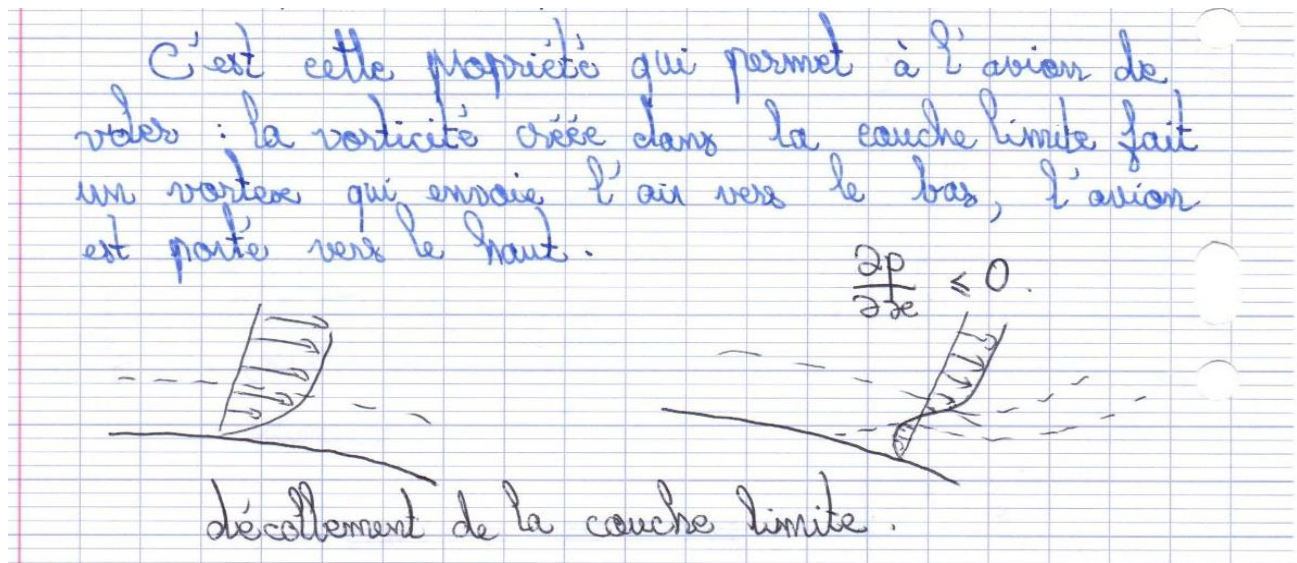 C'est cette propriété qui permet à l'avion de
voler : la vorticité créée dans la couche limite fait
un vortex qui envoie l'air vers le bas, l'avion
est porté vers le haut.
∂p/∂x ≤ 0.
décollement de la couche limite.